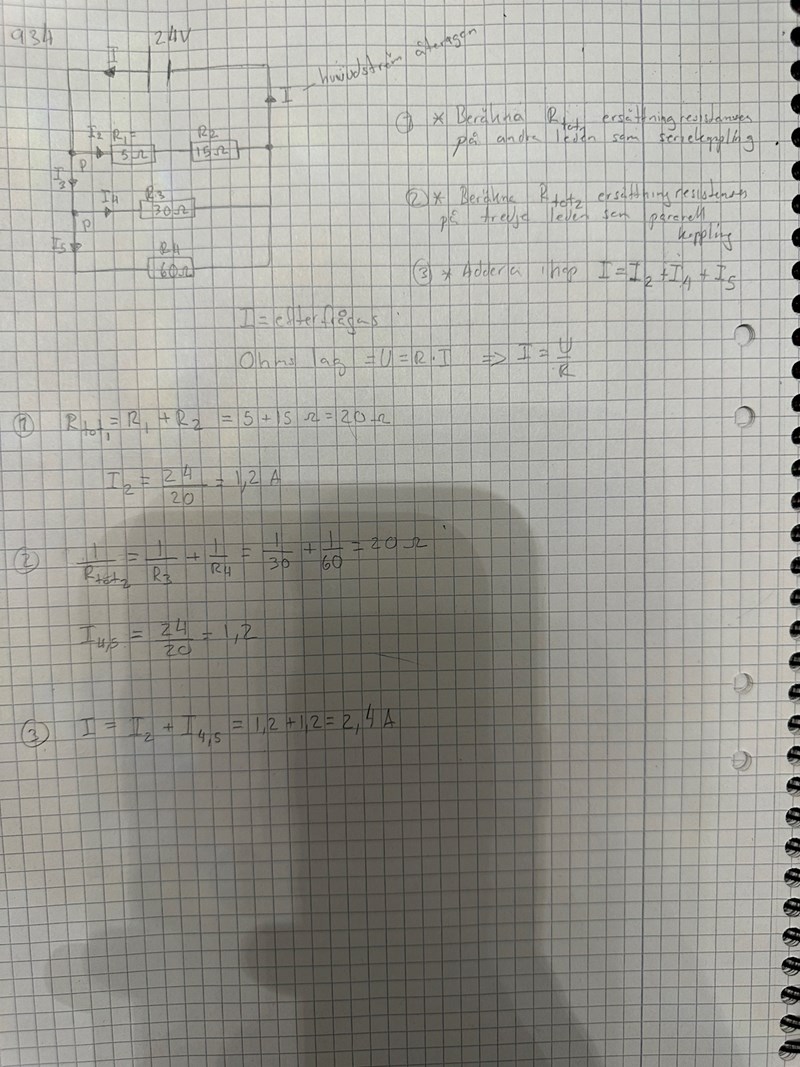 934
24V
I
I - huvudström återigen
I₂ R₁= R₂
5Ω 15Ω
P
I₃
I₄ R₃
30Ω
P
I₅ R₄
60Ω
① * Beräkna R_tot₁ ersättningresistansen
på andra leden som seriekoppling
② * Beräkna R_tot₂ ersättningresistensen
på tredje leden som parerell
koppling
③ * Addera ihop I = I₂ + I₄ + I₅
I = efterfrågas
Ohms lag = U = R · I => I = U/R
① R_tot₁ = R₁ + R₂ = 5 + 15 Ω = 20 Ω
I₂ = 24/20 = 1,2 A
② 1/R_tot₂ = 1/R₃ + 1/R₄ = 1/30 + 1/60 = 20 Ω
I₄,₅ = 24/20 = 1,2
③ I = I₂ + I₄,₅ = 1,2 + 1,2 = 2,4 A